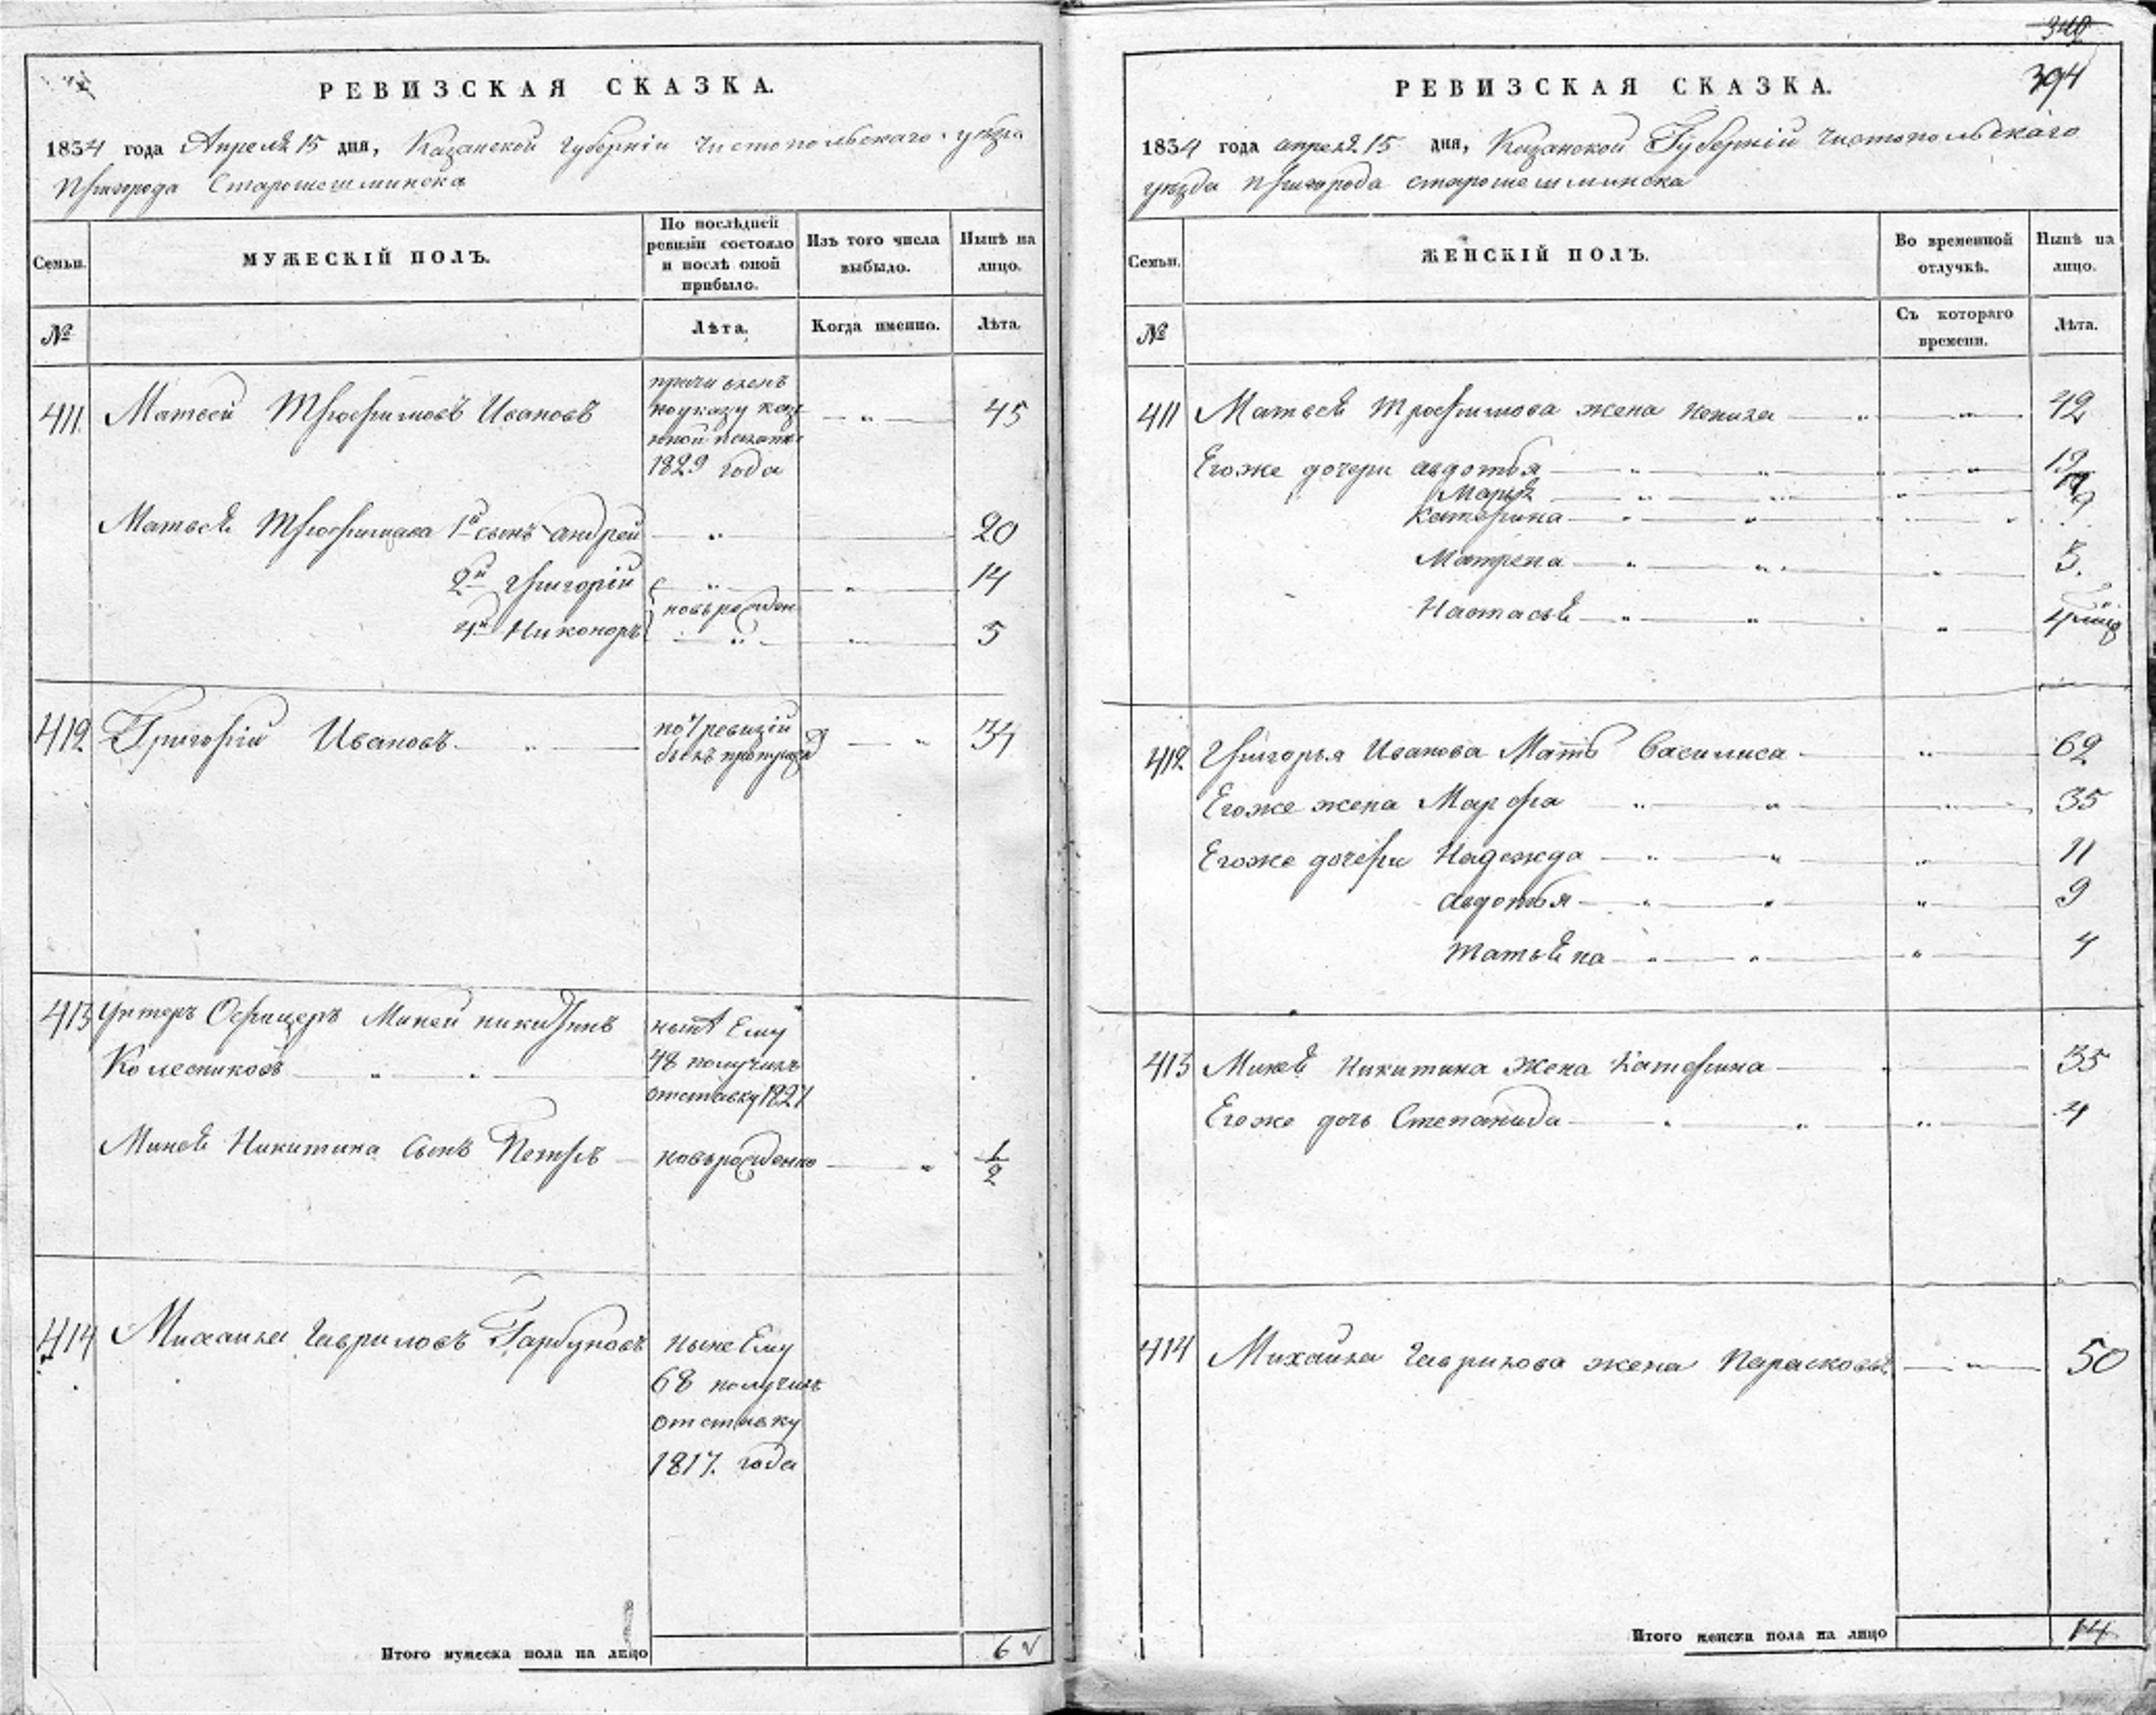 РЕВИЗСКАЯ СКАЗКА.
1834 года Апреля 15 дня, Казанской Губернiи Чистопольскаго уезда
Пригорода Старошешминска
Семьи.
МУЖЕСКIЙ ПОЛЪ.
По послѣдней ревизiи состояло и послѣ оной прибыло.
Изъ того числа выбыло.
Нынѣ на лицо.
№
Лѣта.
Когда именно.
Лѣта.
411 Матвей Трофимовъ Ивановъ
причисленъ
по указу каз
енной палаты
1829 года
45
Матвея Трофимова 1й сынъ андрей 20
2й Григорiй 14
новърожден
4й Никоноръ 5
412 Григорiй Ивановъ
по 7 ревизiи
былъ пропущен
34
413 Унтеръ Офицеръ Миней никитинъ
Колесниковъ
ныне Ему
48 получилъ
отставку 1827
Минея Никитина Сынъ Петръ новърожденно 1/2
414 Михаила Гавриловъ Гарбуновъ
ныне Ему
68 получилъ
отставку
1817. года
Итого мужеска пола на лицо 6
340
394
РЕВИЗСКАЯ СКАЗКА.
1834 года апреля 15 дня, Казанской Губернiи Чистопольскаго
уезда пригорода старошешминска
Семьи.
ЖЕНСКIЙ ПОЛЪ.
Во временной отлучкѣ.
Нынѣ на лицо.
№
Съ котораго времени.
Лѣта.
411 Матвея Трофимова жена 42
Егоже дочери авдотья
Марья
Катерина
Матрена 5.
Настасья
412 Григорья Иванова Мать Василиса 62
Егоже жена Марфа 35
Егоже дочери Надежда 11
авдотья 9
татьяна 4
413 Минея Никитина Жена Катерина 35
Егоже дочь Степанида 4
414 Михайла Гаврилова жена Парасковья 50
Итого женска пола на лицо 14